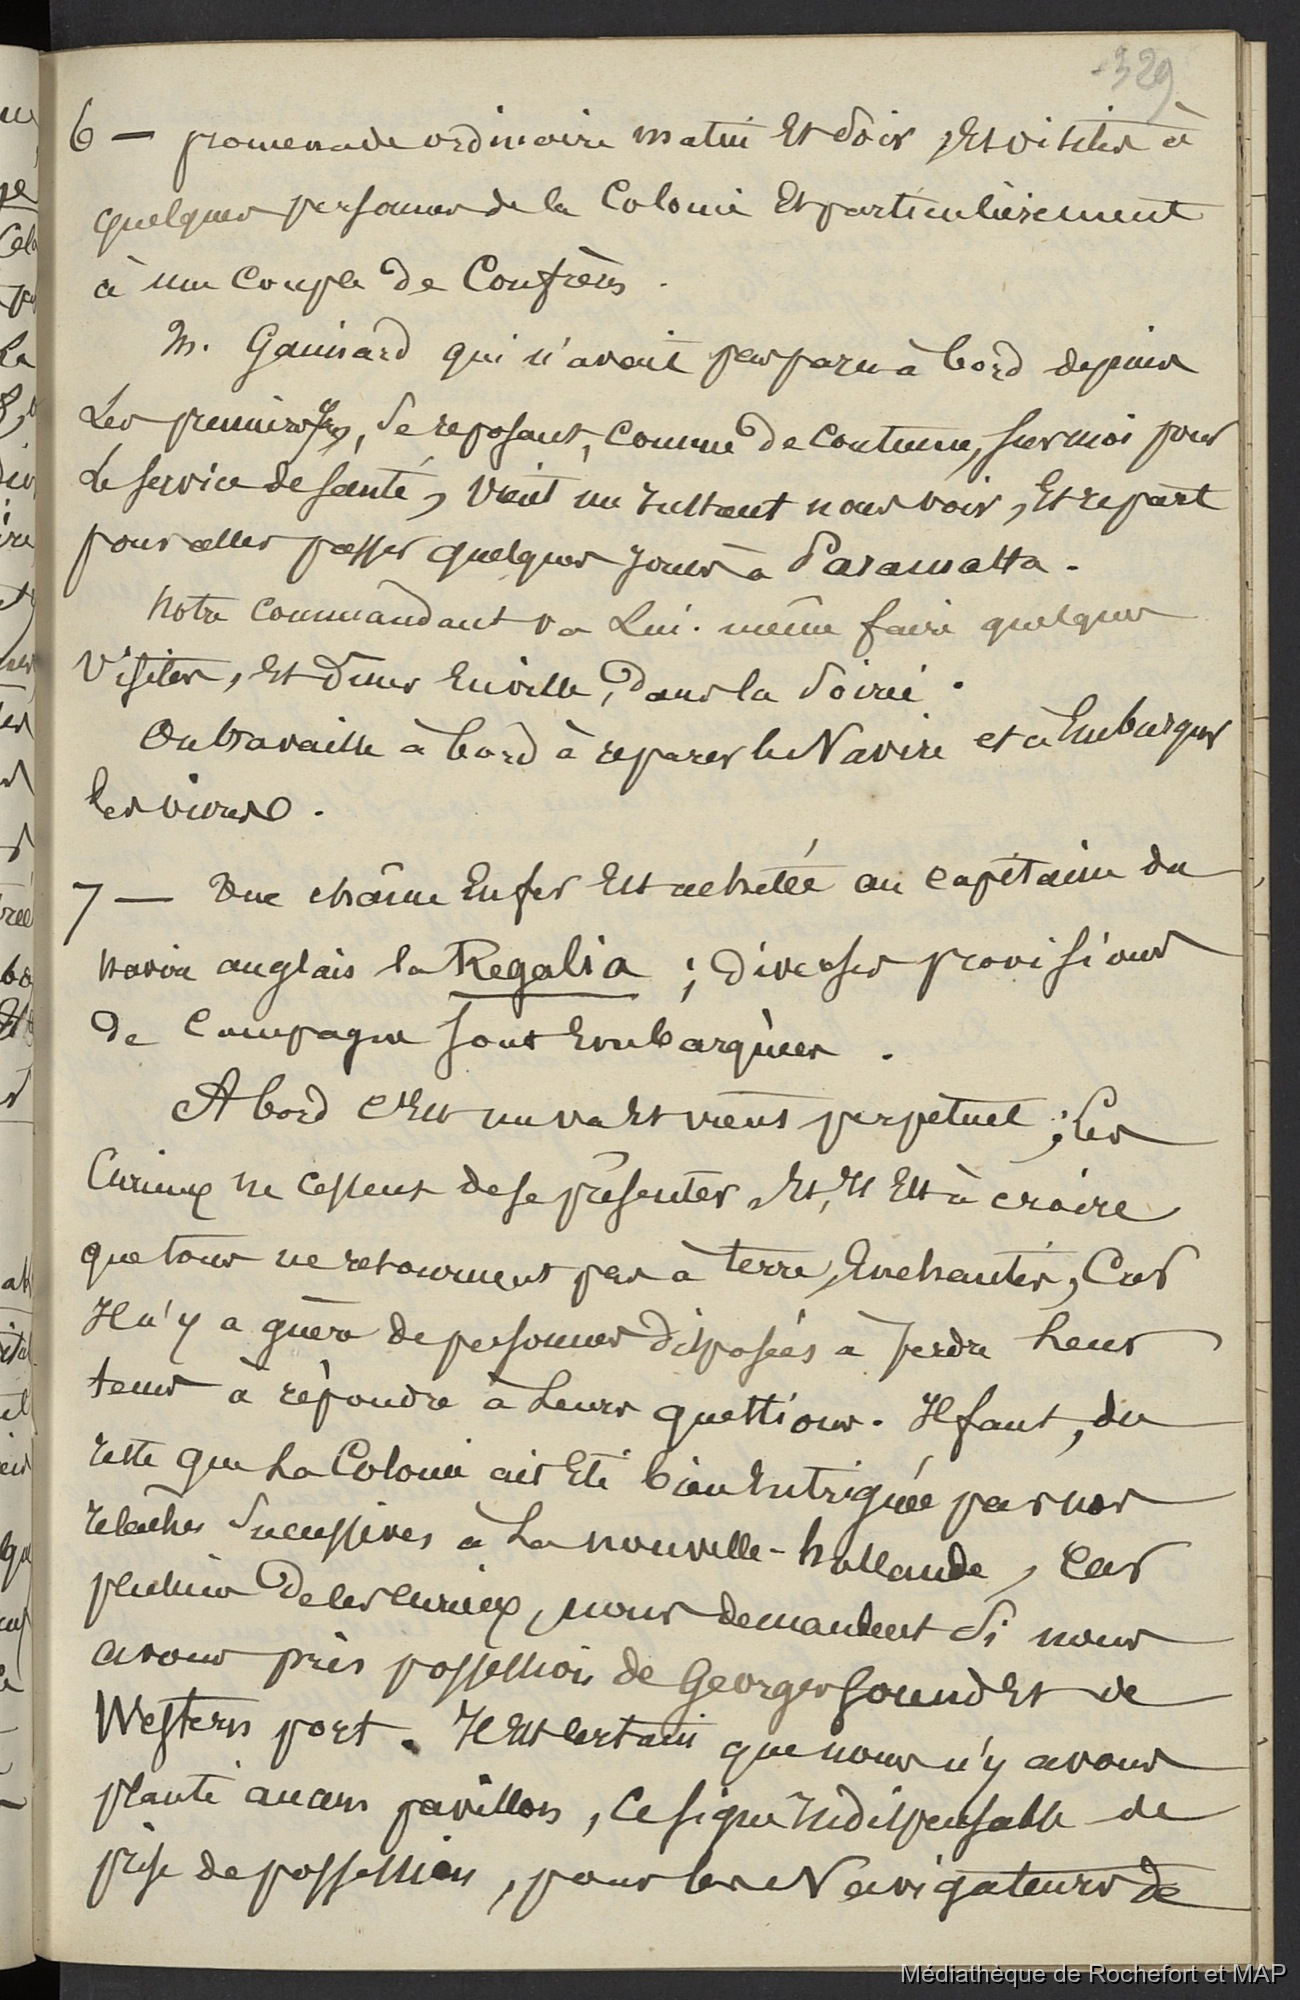 329
6 — promenade ordinaire matin Et Soir, Et visites à
quelques personnes de la Colonie Et particulièrement
à une Couple de Confrères.
M. Gaimard qui n'avait pas paru à bord depuis
Les premiers jrs, Se reposant, comme de coutume, sur moi pour
Le service de santé, vient un instant nous voir, Et repart
pour aller passer quelques jours à Paramatta.
Notre commandant va Lui-même faire quelques
Visites, Et Diner En ville, Dans la Soirée.
On travaille à bord à reparer le Navire et à Embarquer
les vivres.
7 — Une chaîne En fer Est achetée au capitaine du
navire anglais la Regalia ; Diverses provisions
de Campagne sont Embarquées.
A bord c'Est un va Et vient perpétuel ; Les
Curieux ne cessent de se présenter, Et, Il Est à croire
que tous ne retournent pas à terre, Enchantés, Car
Il n'y a guère de personnes disposées à perdre Leur
tems à répondre à Leurs questions. Il faut, du
reste que La Colonie ait Eté bien Intriguée par nos
relâches Successives à La nouvelle-hollande, Car
plusieurs De les curieux, nous demandent Si nous
avons pris possession de Georges Sound Et de
Western port. Il Est certain que nous n'y avons
planté aucun pavillon, ce signe Indispensable de
prise de possession, pour les Navigateurs de
Médiathèque de Rochefort et MAP